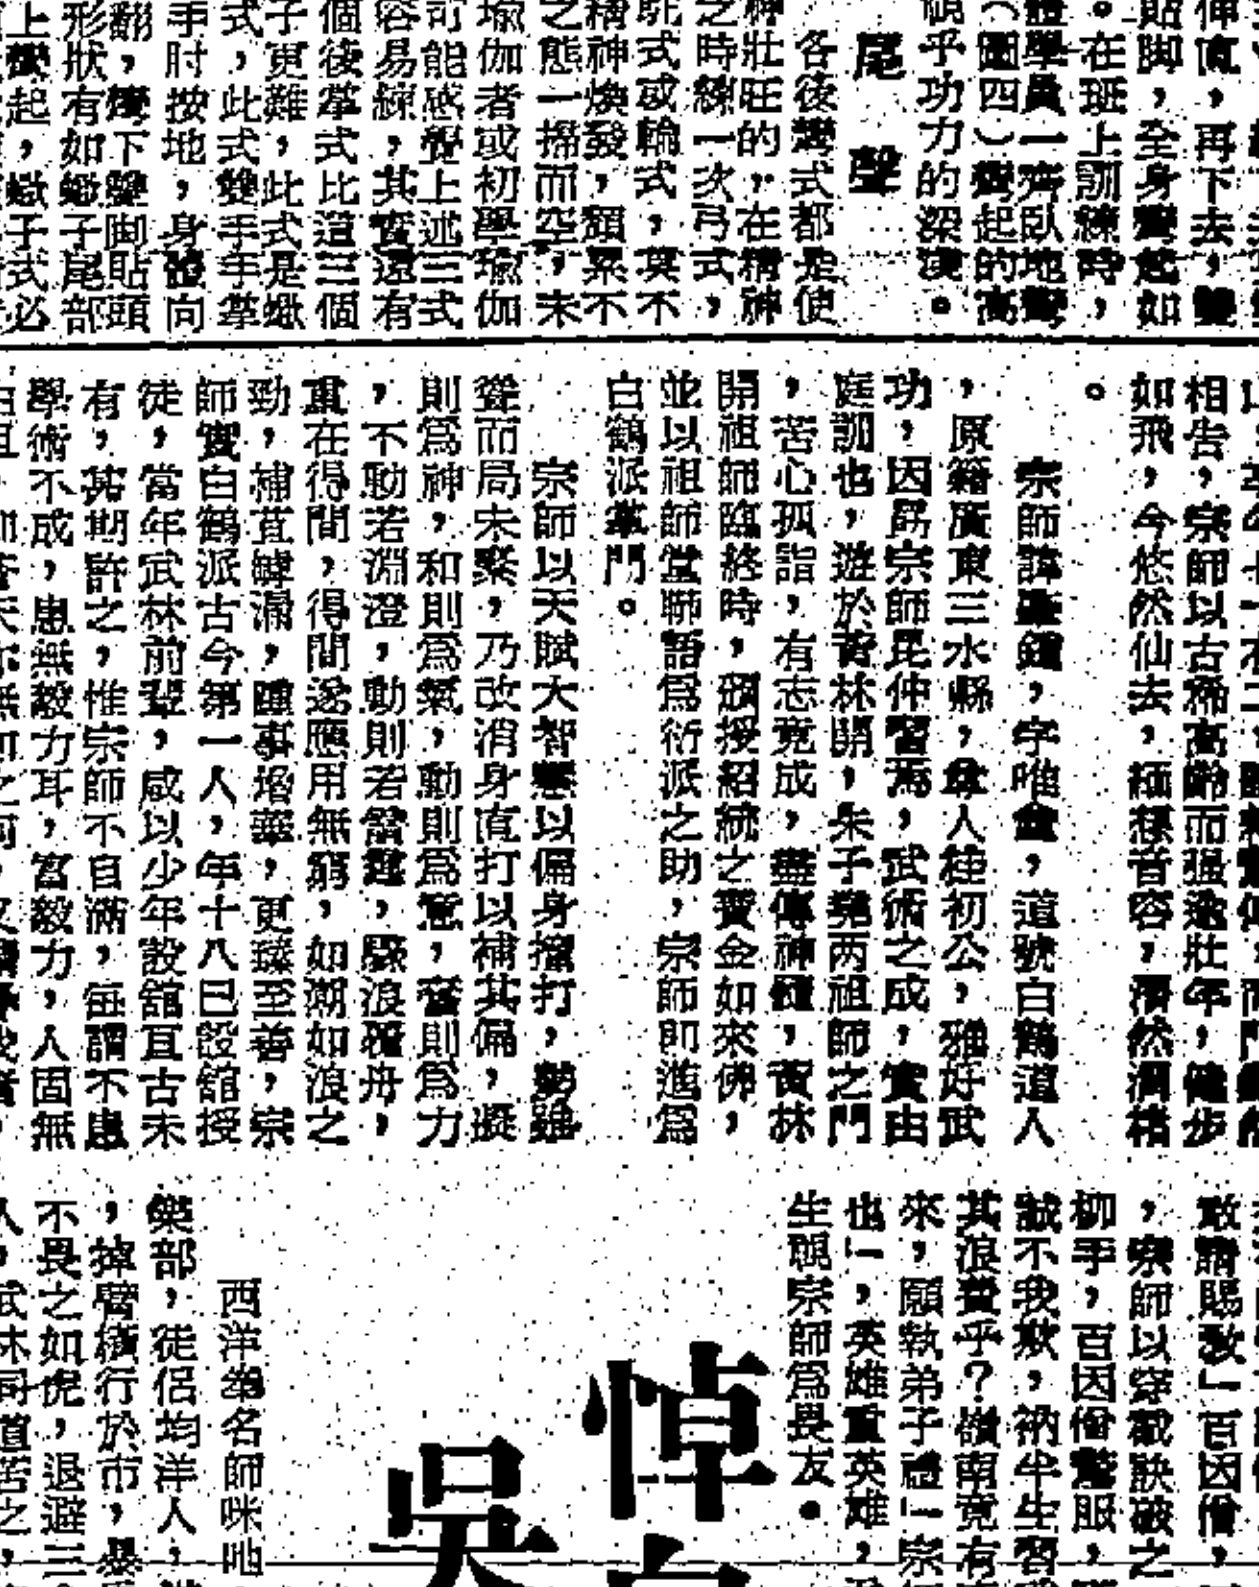 伸直，再下去，雙
貼脚，全身彎起如
。在班上訓練時，
體學員一齊臥地彎
（圖四）彎起的高
視乎功力的深淺。
尾聲
各後彎式都是使
神壯旺的，在精神
之時練一次弓式，
駝式或輪式，莫不
精神煥發，頹累不
之態一掃而空，未
瑜伽者或初學瑜伽
可能感覺上述三式
容易練，其實還有
個後掌式比這三個
子更難，此式是蠍
式，此式雙手年掌
手肘按地，身體向
翻，彎下雙脚貼頭
形狀有如蠍子尾部
上彎起，蠍子式必
相告，宗師以古稀高齡而强逾壯年，健步
如飛，今悠然仙去，緬想音容，潸然
。
宗師諱肇鍾，字唯盦，道號白鶴道人
，原籍廣東三水縣，尊人桂初公，雅好武
功，因勗宗師昆仲習焉，武術之成，實由
庭訓也，遊於黃林開，朱子堯两祖師之門
，苦心孤詣，有志竟成，盡傳神髓，黃林
開祖師臨終時，頒授紹統之寶金如來佛，
並以祖師堂聯語爲衍派之助，宗師即進爲
白鶴派掌門。
宗師以天賦大智慧以偏身擋打，勢雖
聳而局未緊，乃改消身直打以補其偏，凝
則爲神，和則爲氣，動則爲意，奮則爲力
，不動若淵澄，動則若雷霆，駭浪覆舟，
重在得間，得間遂應用無窮，如潮如浪之
勁，補苴罅漏，踵事增華，更臻至善，宗
師實白鶴派古今第一人，年十八已設舘授
徒，當年武林前輩，咸以少年設舘亘古未
有，甚期許之，惟宗師不自滿，每謂不患
學術不成，患無毅力耳，富毅力，人固無
敢請賜敎」百因僧，
，宗師以穿截訣破之
柳手，百因僧驚服，
誠不我欺，衲半生習
其浪費乎？嶺南竟有
來，願執弟子禮」宗
也」，英雄重英雄，
生視宗師爲畏友。
悼
吳
西洋拳名師咪吔
樂部，徒侶均洋人，
，掉臂橫行於市，暴
不畏之如虎，退避三
人，武林同道苦之，